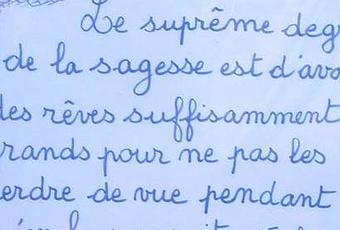 Le suprême deg
de la sagesse est d'avo
des rêves suffisamment
rands pour ne pas les
erdre de vue pendant